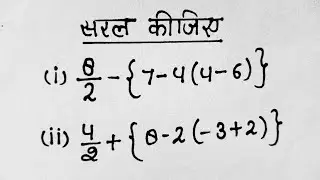 सरल कीजिए
(i) 8/2 - {7-4(4-6)}
(ii) 4/2 + {8-2(-3+2)}